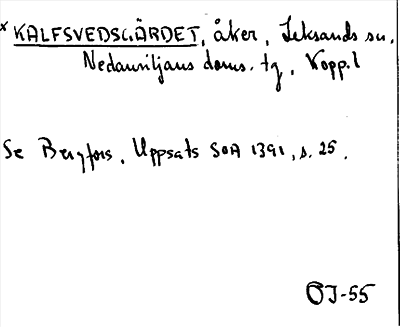 * KALFSVEDSGÄRDET, åker, Leksands sn.
Nedansiljans doms. tg, Kopp.l
Se Bergfors, Uppsats SOA 1391, s. 25.
ÖJ-55